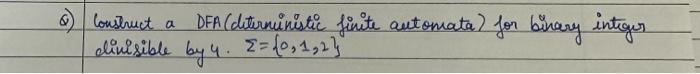 Q) Construct a DFA (deterministic finite automata) for binary integer
divisible by 4. Σ = {0,1,2}